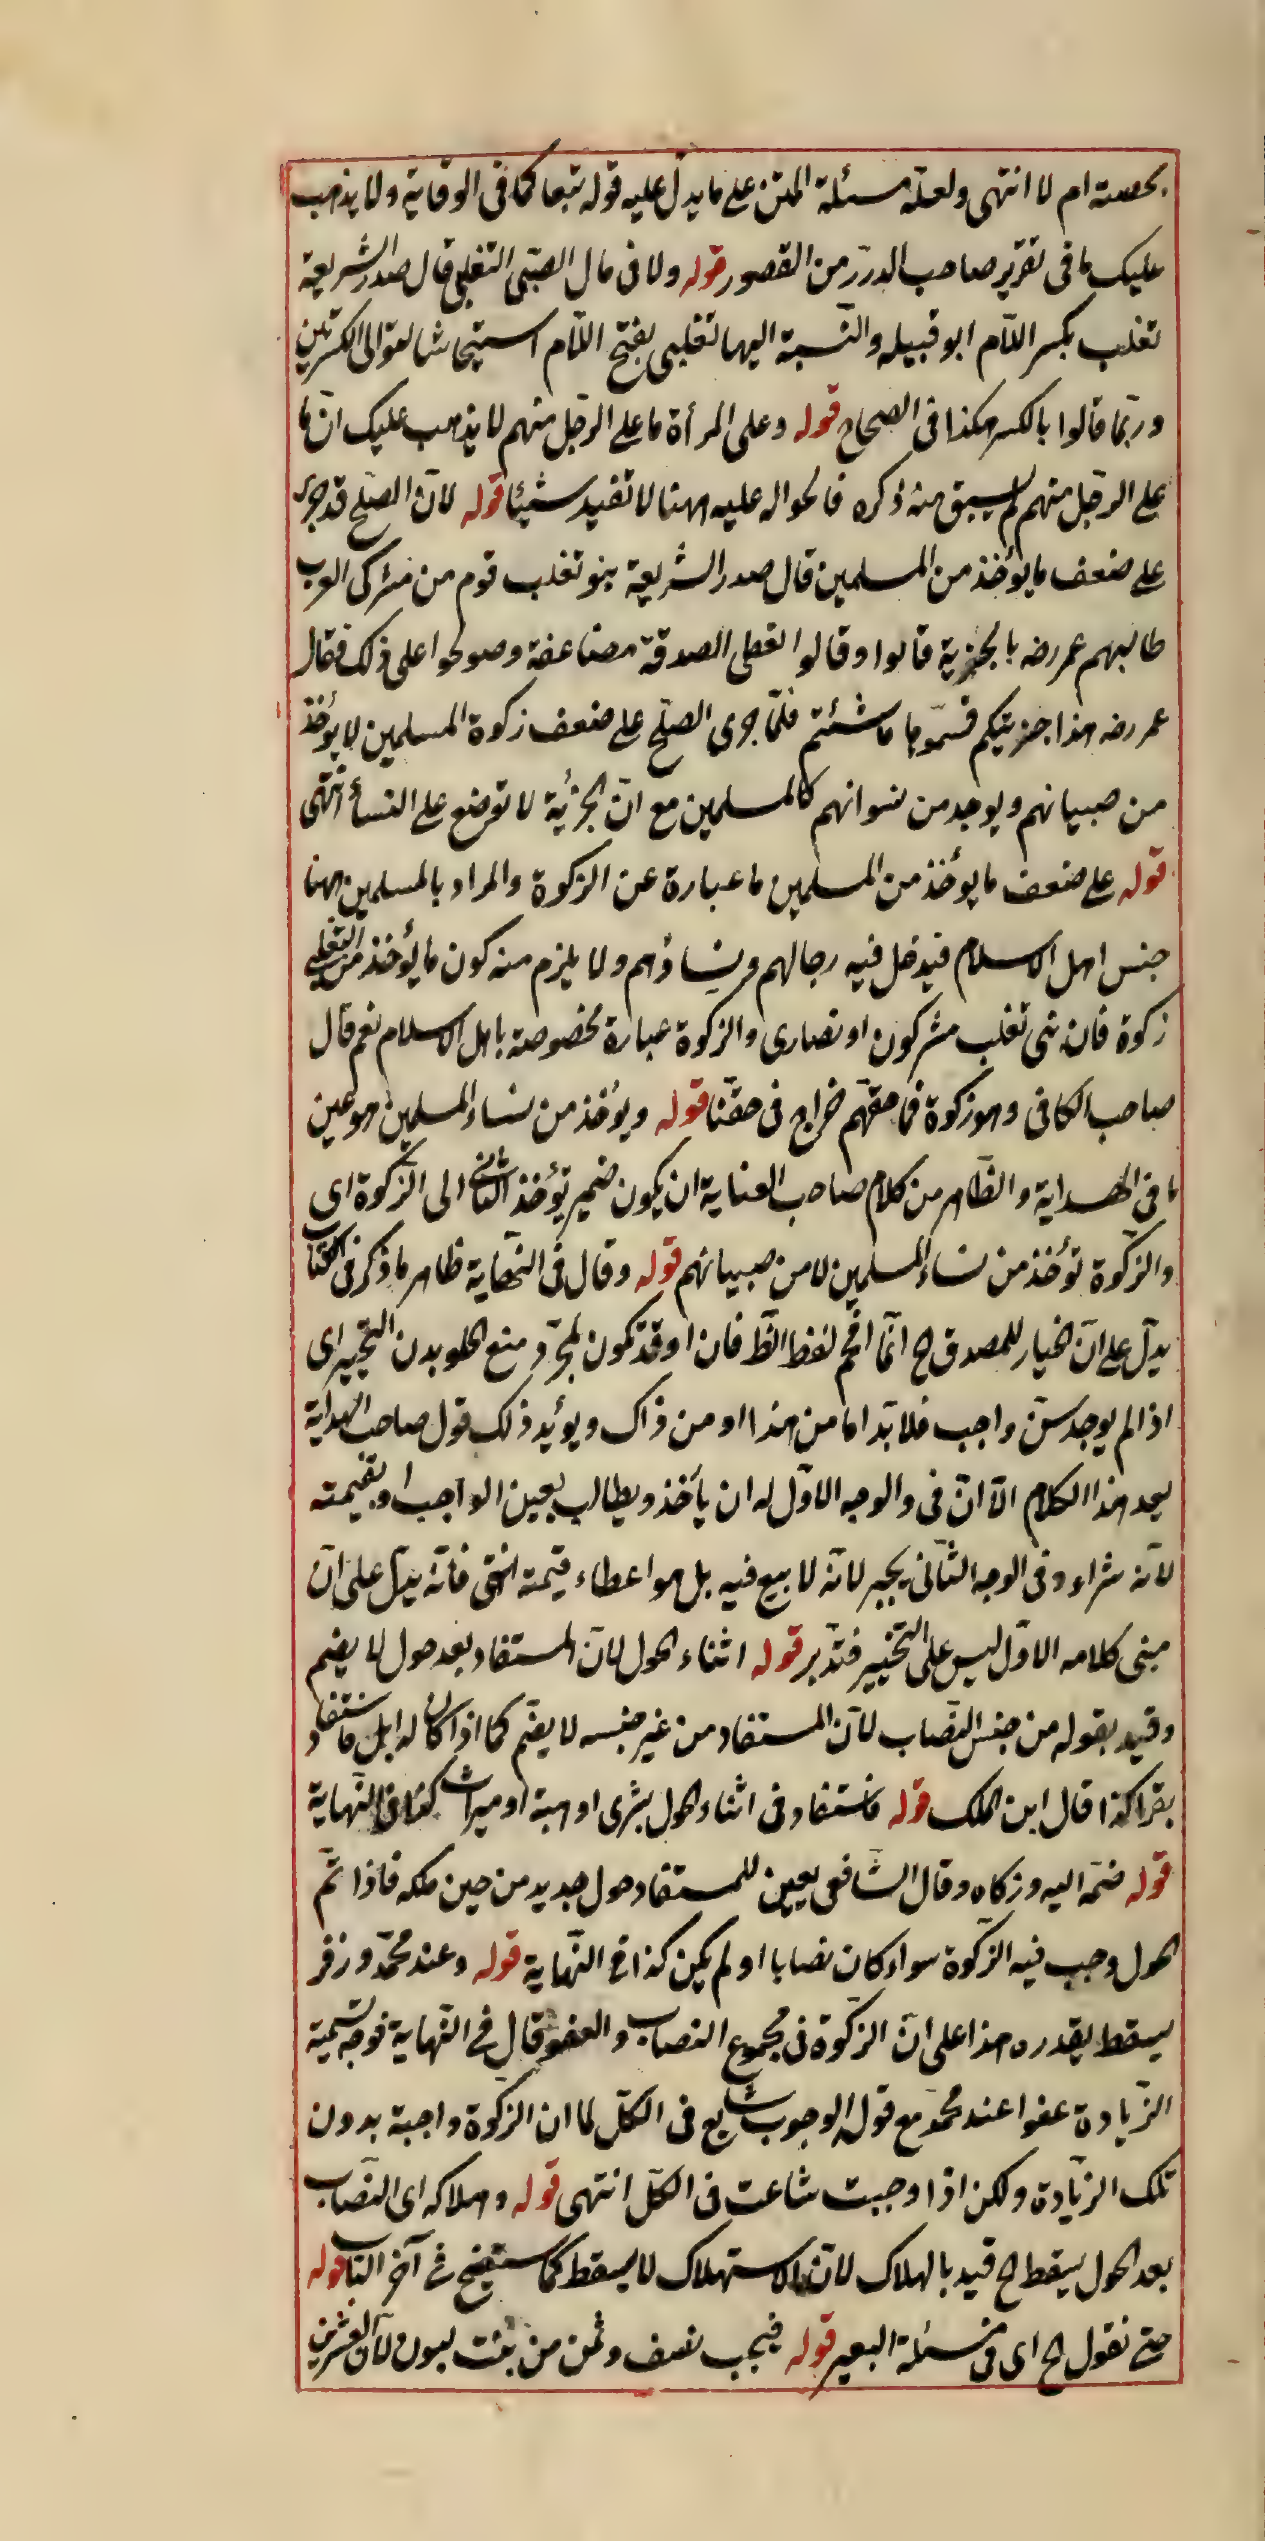 بحصته ام لا انتهى ولعله مسئلة المتن على ما يدل عليه قوله تبعا كما فى الوقاية ولا يذهب
عليك ما فى تقرير صاحب الدرر من القصور قوله ولا فى مال الصبى التغلبى قال صدر الشريعة
تغلب بكسر اللام ابو قبيله والنسبة اليها تغلبى بفتح اللام استيحاشا لتوالى الكسرتين
وربما قالوا بالكسر هكذا فى الصحاح قوله وعلى المرأة ما على الرجل منهم لا يذهب عليك ان ما
على الرجل منهم لم يسبق منه ذكره فالحواله عليه ههنا لا تفيد شيئا قوله لان الصلح قد جرى
على ضعف ما يؤخذ من المسلمين قال صدر الشريعة بنو تغلب قوم من مشركى العرب
طالبهم عمر رضه بالجزية فابوا وقالوا نعطى الصدقة مضاعفة وصولحوا على ذلك فقال
عمر رضه هذا جزيتكم فسموها ما شئتم فلما جرى الصلح على ضعف زكوة المسلمين لا يؤخذ
من صبيانهم ويوجد من نسوانهم كالمسلمين مع ان الجزية لا توضع على النسأ انتهى
قوله على ضعف ما يؤخذ من المسلمين ما عبارة عن الزكوة والمراد بالمسلمين ههنا
جنس اهل الاسلام فيدخل فيه رجالهم ونساؤهم ولا يلزم منه كون ما يؤخذ من التغلبى
زكوة فان بنى تغلب مشركون او نصارى والزكوة عبارة مخصوصة باهل الاسلام نعم قال
صاحب الكافى وهو زكوة فى حقهم خراج فى حقنا قوله ويؤخذ من نساء المسلمين هو عين
ما فى الهداية والظاهر من كلام صاحب العناية ان يكون ضمير تؤخذ الثانى الى الزكوة اى
والزكوة تؤخذ من نساء المسلمين لا من صبيانهم قوله وقال فى النهاية ظاهر ما ذكر فى الكتاب
يدل على ان الخيار للمصدق الخ انما اقحم لفظ الظ فان او قد تكون لمجرد منع الخلو بدن التخيير اى
اذا لم يوجد سن واجب فلا بد اما من هذا او من ذاك ويؤيد ذلك قول صاحب الهداية
بعد هذا الكلام الا ان فى والوجه الاول له ان يأخذ ويطالب بعين الواجب او بقيمته
لانه شراء وفى الوجه الثانى يجبر لانه لا بيع فيه بل هو اعطاء قيمته انتهى فانه يدل على ان
مبنى كلامه الاول ليس على التخيير فتدبر قوله اثناء الحول لان المستفاد بعد حول لا يضم
وقيد بقوله من جنس النصاب لان المستفاد من غير جنسه لا يضم كما اذا كان له ابل فاستفاد
بقرا كذا قال ابن الملك قوله فاستفاد فى اثناء الحول بشرى او هبة او ميراث كذا فى النهاية
قوله ضمه اليه وزكاه وقال الشافعى يعين للمستفاد حول جديد من حين ملكه فاذا تم
الحول وجب فيه الزكوة سواء كان نصابا او لم يكن كذا فى النهاية قوله وعند محمد وزفر
يسقط بقدره هذا على ان الزكوة فى مجموع النصاب والعفو قال فى النهاية فوجه تسمية
الزيادة عفوا عند محمد مع قوله الوجوب شايع فى الكل لما ان الزكوة واجبة بدون
تلك الزيادة ولكن اذا وجبت شاعت فى الكل انتهى قوله وهلاكه اى النصاب
بعد الحول يسقط الخ قيد بالهلاك لان الاستهلاك لا يسقط كما ستقف فى آخر الباب قوله
حتى نقول الخ اى فى مسئلة البعير قوله فيجب نصف وثمن من بنت لبون لان العشرين